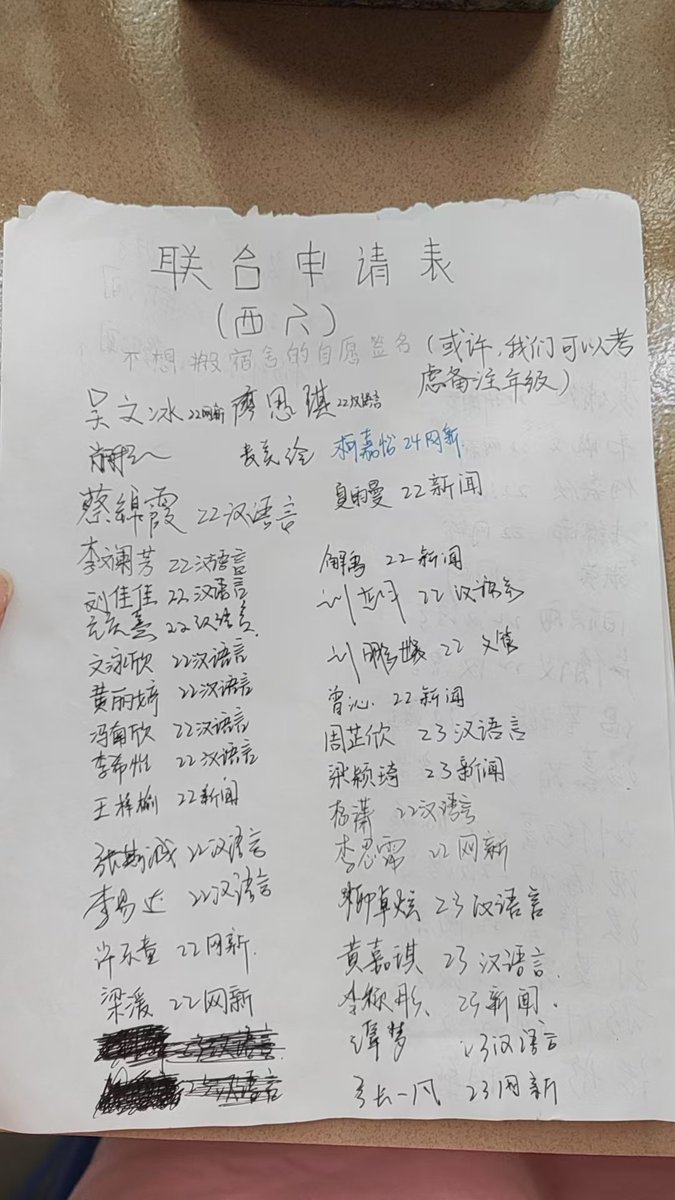 联合申请表
(西六)
不想搬宿舍的自愿签名 (或许,我们可以考
虑备注年级)
吴文冰 22网新 廖思琪 22汉语言
柯嘉怡 24网新
蔡绵霞 22汉语言 夏雨曼 22新闻
李斓芳 22汉语言 22新闻
刘佳佳 22汉语言 22汉语言
22汉语言 22
文泳欣 22汉语言
黄丽婷 22汉语言 曾沁 22新闻
冯南欣 22汉语言 周芷欣 23汉语言
李希怡 22汉语言 梁颖琦 23新闻
王梓榆 22新闻 杨潇 22汉语言
22汉语言 李思霈 22网新
李易达 22汉语言 柳卓炫 23汉语言
许不童 22网新. 黄嘉琪 23汉语言.
梁湲 22网新 李颖彤 23新闻.
谭梦 23汉语言
一凡 23网新